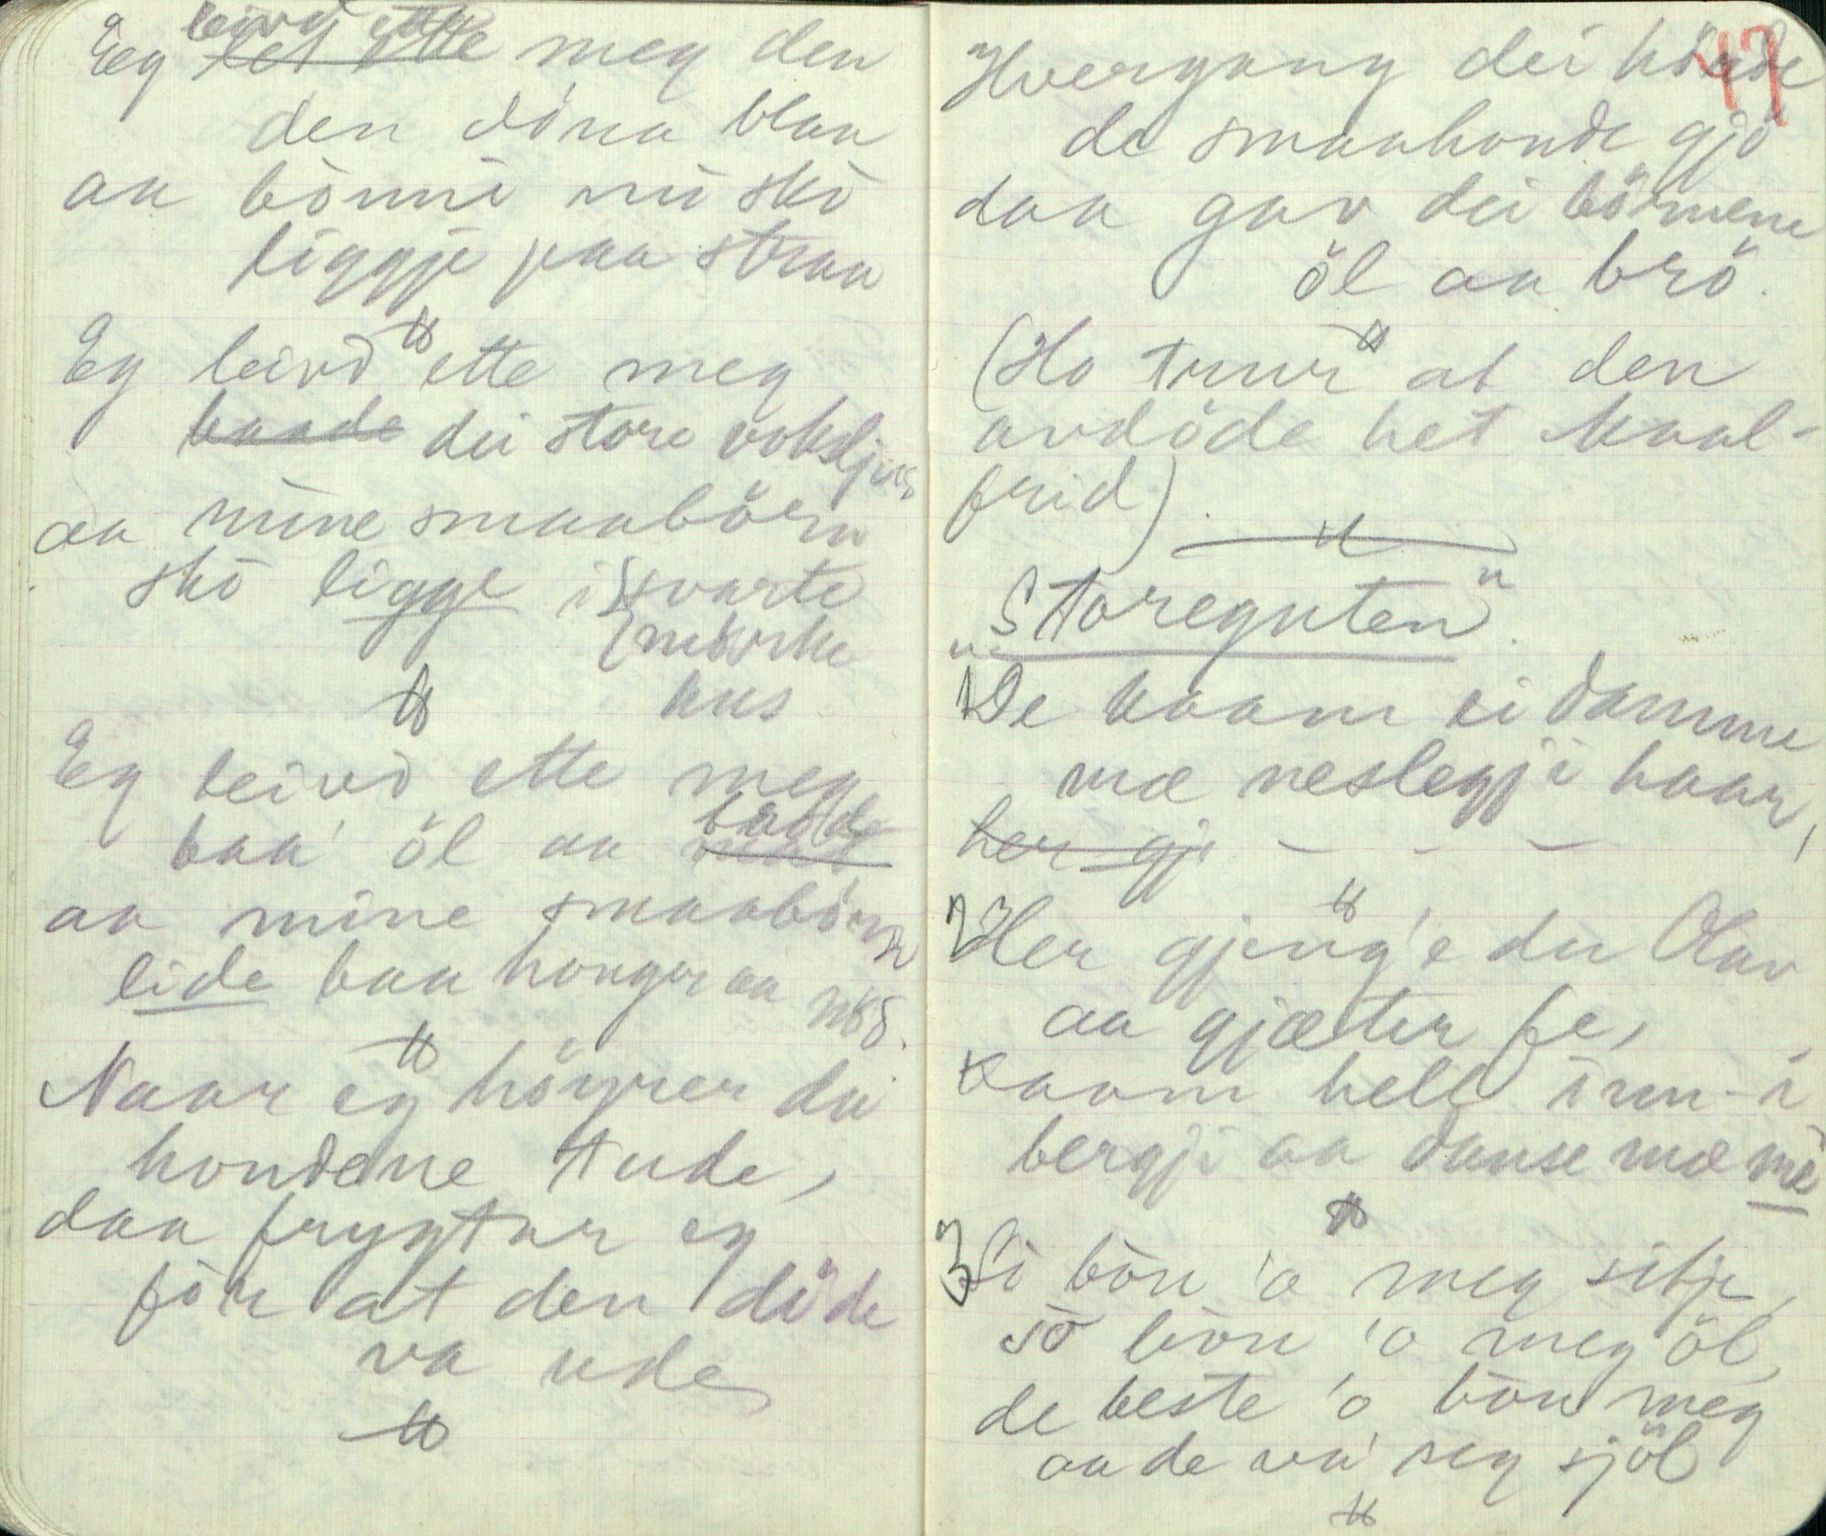 leivd ette
Eg let ette meg den
den dúna blaa
aa bönni mi skò
liggji paa straa
Eg leivd ette meg
baade dei store voksljus
aa mine smaabörn
skò ligge i svarte
mörke
hus
Eg leivd ette meg
baade
baa' öl aa
aa mine smaabörn
lide baa honger aa nöd.
Naar eg höyrer dei
hondene tude,
daa frygtar eg
för at den döde
va ude
47
Hvergang dei hörde
de smaahonde gjö
daa gav dei börnene
öl aa brö.
(Ho truur at den
avdöde het Maal-
frid).
"Storeguten".
1 De kaam ei damme
mæ neslegji haar,
her gje - - -
2 Her gjeng'e du Olav
aa gjæter fe,
kaam hell inn-i
bergji aa danse mæ me
3 Sò bou 'o meg sitje,
sò bou 'o meg öl,
de beste 'o bou meg
aa de va' seg sjöl